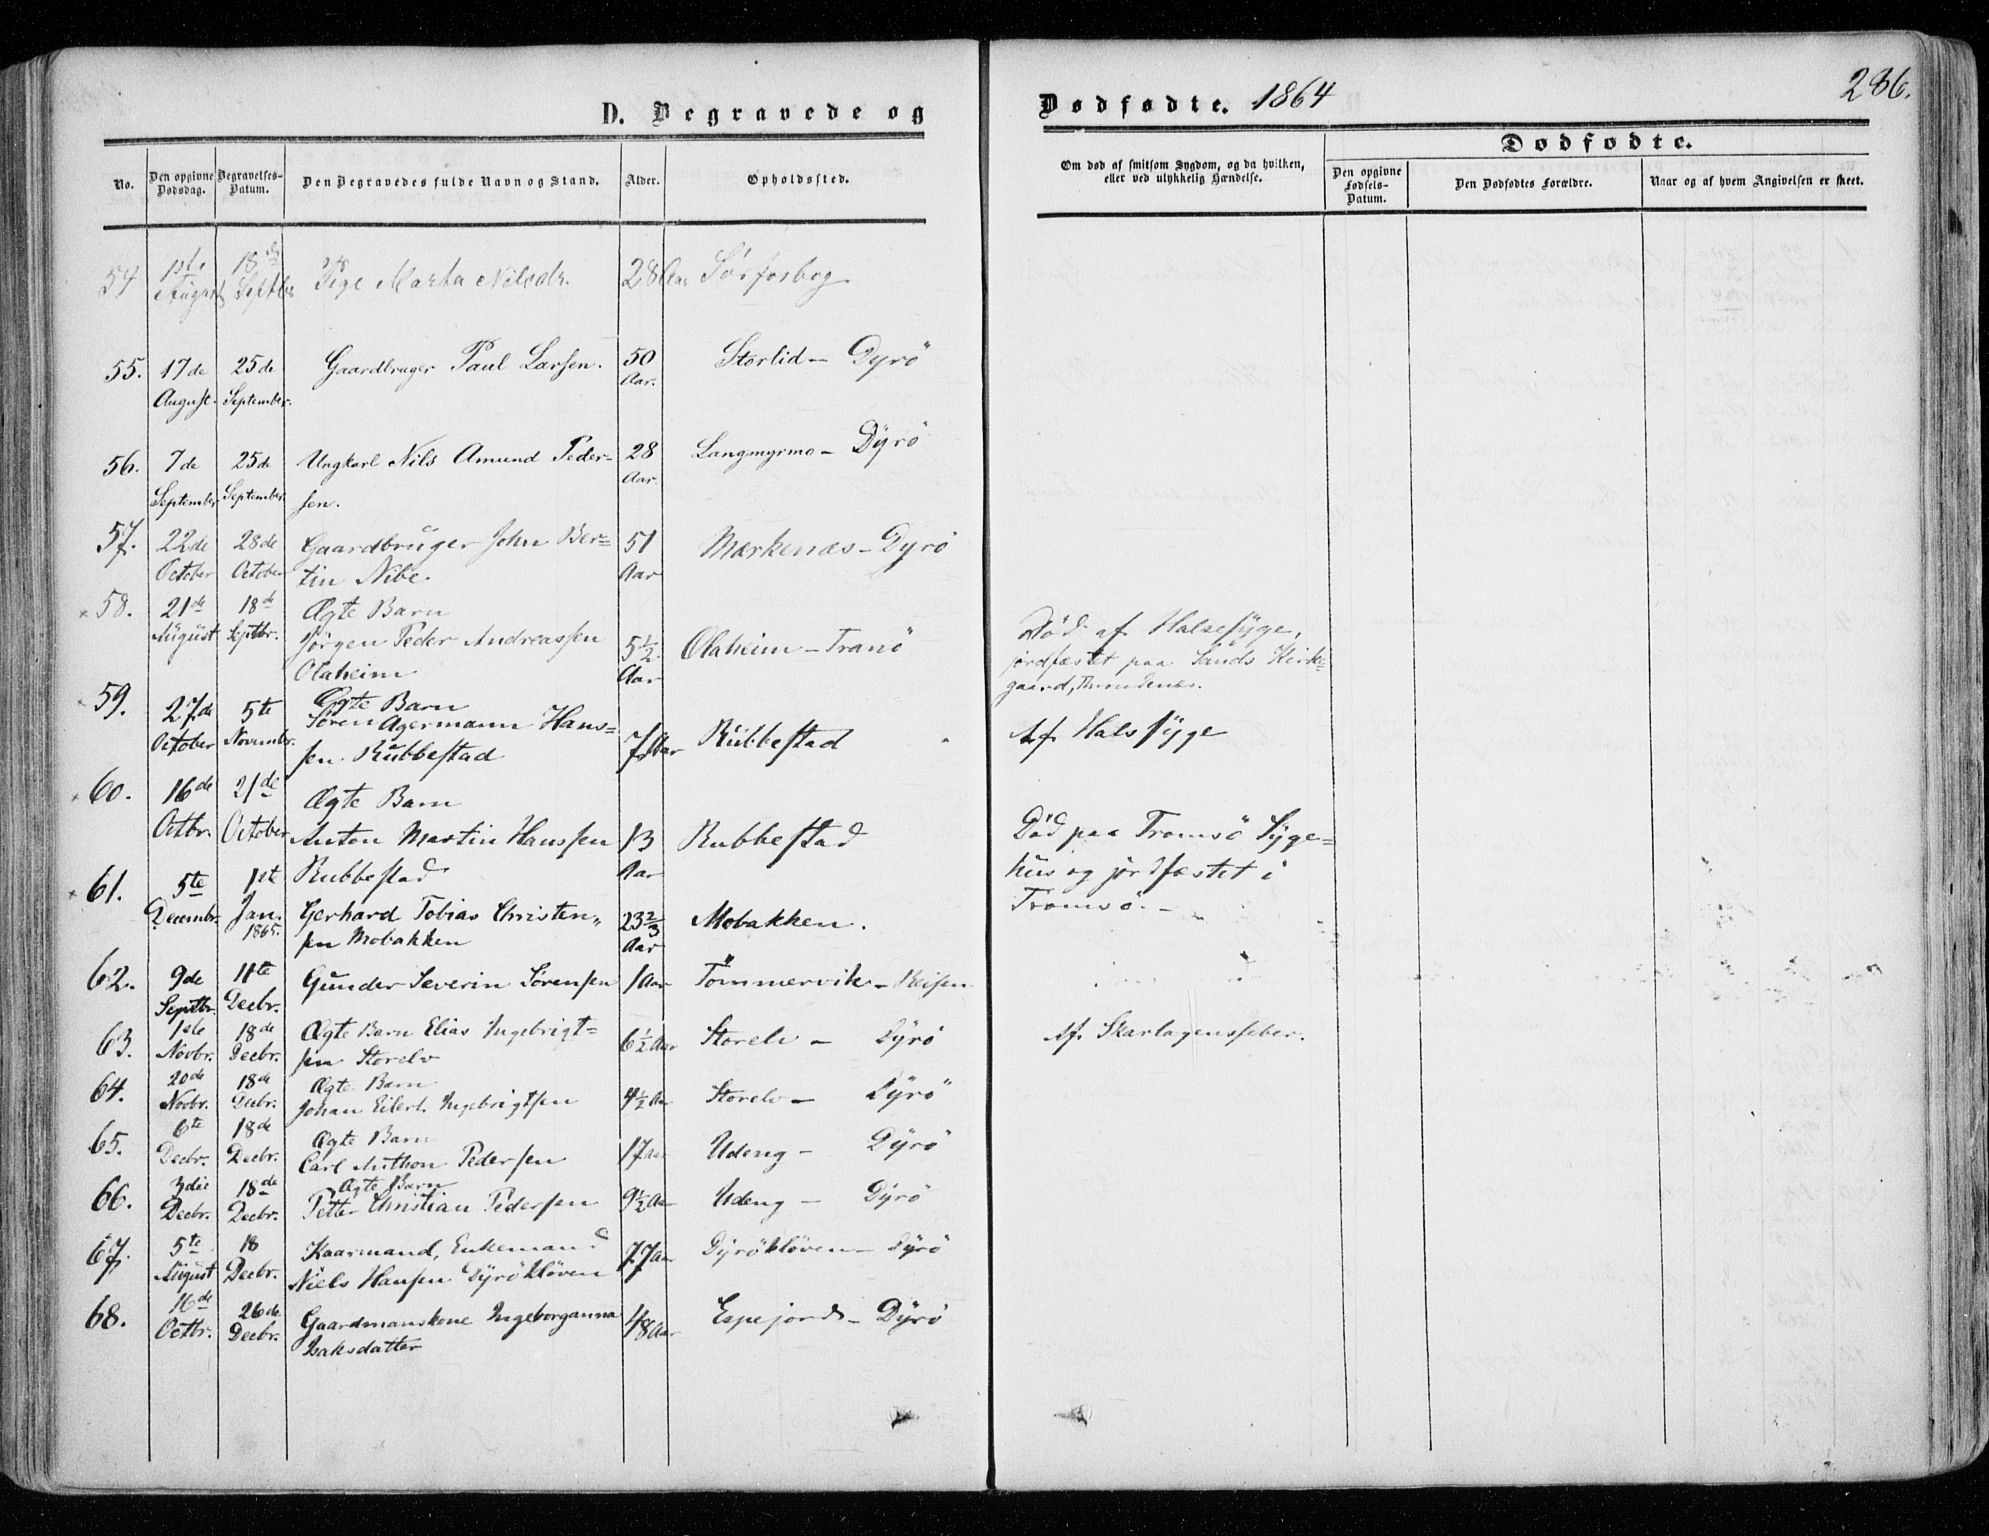 D. Begravede og
Dødfødte. 1864
286.
No.
Den opgivne Dødsdag.
Begravelses-Datum.
Den Begravedes fulde Navn og Stand.
Alder.
Opholdssted.
Om død af smitsom Sygdom, og da hvilken, eller ved ulykkelig Hændelse.
Dødfødte.
Den opgivne Fødsels-Datum.
Den Dødfødtes Forældre.
Naar og af hvem Angivelsen er skeet.
54 1st. August 18de Septbr Pige Marta Nilsdr. 28 Aar Sørfosbog
55. 17de August. 25de September. Gaardbruger Paul Larsen. 50 Aar. Storlid - Dyrö
56. 7de September 25de September Ungkarl Nils Amund Peder-
sen. 28 Aar. Langmyrmo - Dÿrö
57. 22de October 28de October Gaardbrüger John Ber=
tin Nibe. 51 Aar Mærkenæs - Dyrö
58. 21de Aügüst 18de Septbr. Ægte Barn
Jörgen Peder Andreassen
Olaheim 5½ Aar Olaheim - Tranö
Död af Halsesÿge,
jordfæstet paa Sands Kirke=
gaard, Throndenes.
59. 27de October 5te Novembr. Ægte Barn
Sören Agermann Hans=
sen. Rübbestad 7 Aar Rübbestad Af Halssÿge
60. 16de Octbr. 21de October Ægte Barn
Anton Martin Hanssen
Rubbestad 13 Aar Rubbestad
Död paa Tromsö Sÿge=
hüs og jordfæstet i
Tromsö. -
61. 5te Decembr. 1ste Jan. 1865. Gerhard Tobias Christen„
sen Mobakken 23⅔ Aar Mobakken.
62. 9de Septbr. 11te Decbr. Günder Severin Sörensen 1 Aar Tömmervik - Reisen
63. 1ste Novbr. 18de Decbr. Ægte Barn Elias Ingebrigt=
sen Storelv 6½ Aar Storelv - Dÿrö Af Skarlagensfeber.
64. 20de Novbr. 18de Decbr. Ægte Barn
Johan Eilert Ingebrigtsen 4½ Aar Storelv - Dÿrö
65. 6te Decbr. 18de Decbr. Ægte Barn
Carl Anthon Pedersen 17 Aar Udeng - Dÿrö
66. 3die Decbr. 18de Decbr. Ægte Barn
Petter Christian Pedersen 9½ Aar Udeng - Dÿrö
67. 5te Aügüst 18 Decbr. Kaarmand, Enkemand
Niels Hansen Dÿröklöven 77 Aar Dÿröklöven - Dÿrö
68. 16de Octbr. 26de Decbr. Gaardmanskone Ingeborganna
Isaksdatter 48 Aar Espejord - Dÿrö